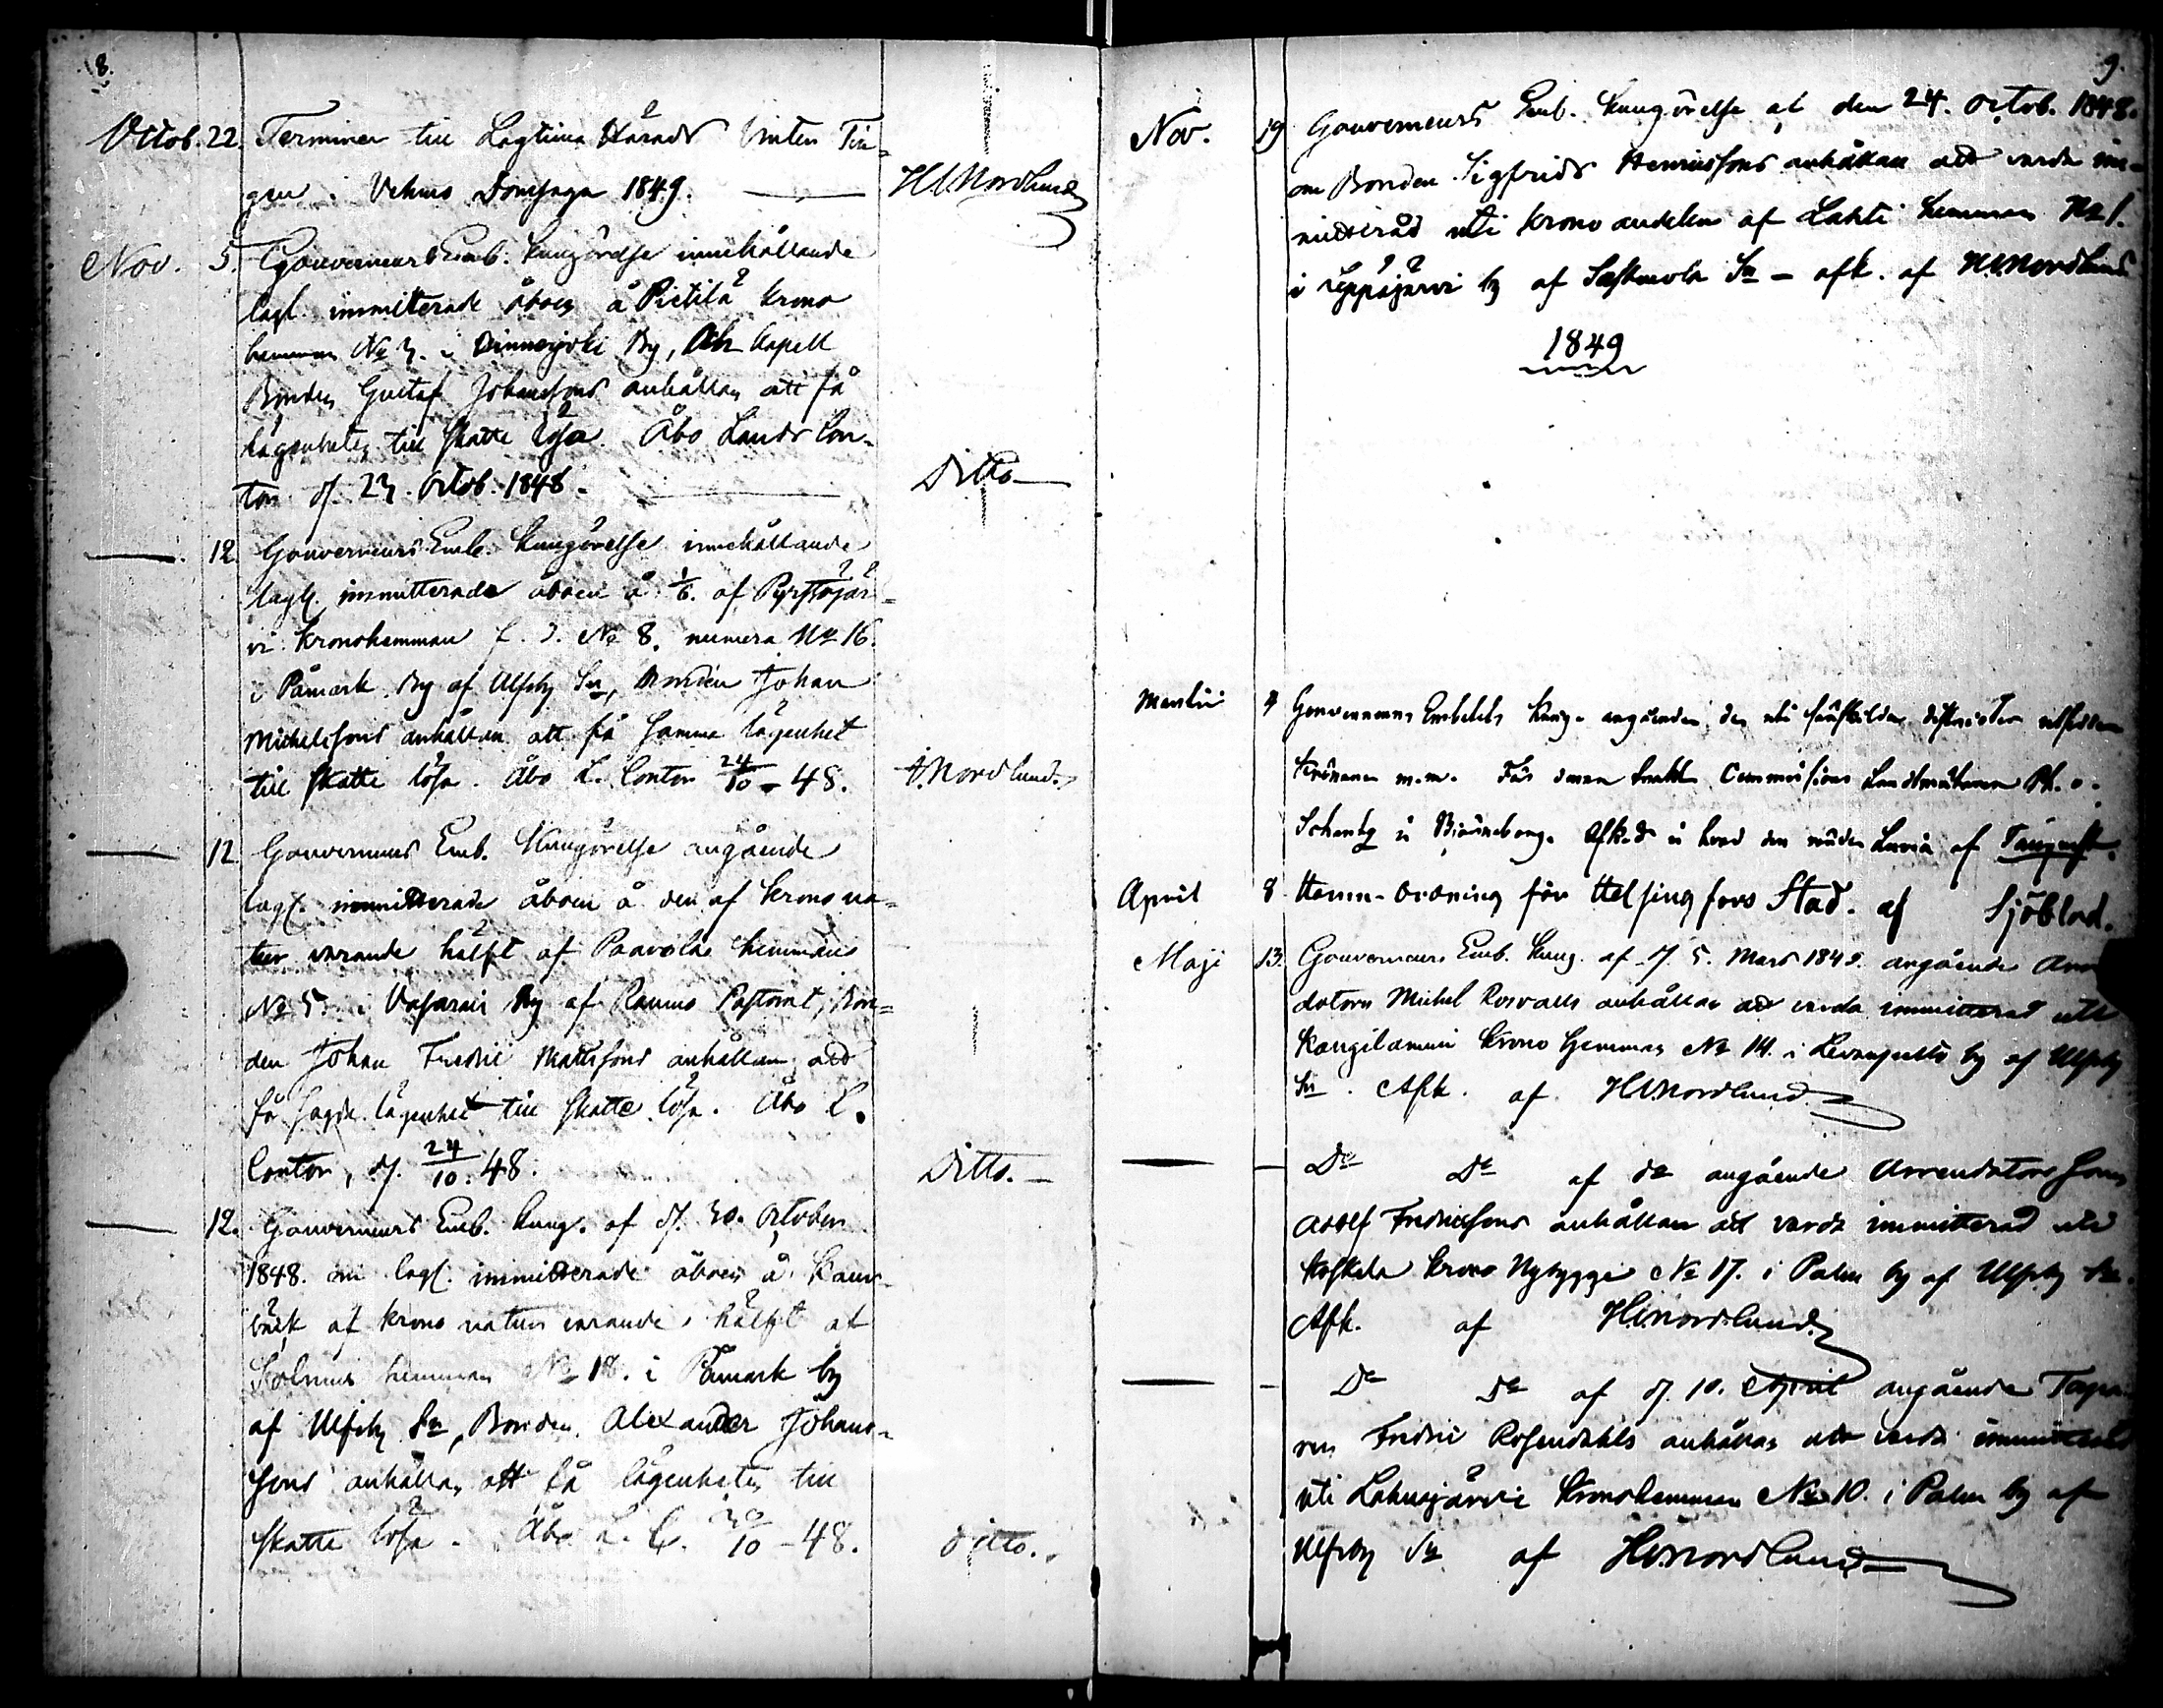 8.
Octob. 22. Terminer till Lagtima Härads Vinter Tin-
gen i Vehmo Domsaga 1849. HNordlund
Nov. 5. Gouverneurs Emb. Kungörelse innehållande
lagl. immitterade åboen å Pietilä Krono
hemman No 3. i By, Kapell
Bonden Gustaf Johanssons anhållan att få
lägenheten till skatte lösa. Åbo Lands Con-
tor d. 23. Octob. 1848. Ditto
12 Gouverneurs Emb. Kungörelse innehållande
lagl. immitterade åboen å 1/6. af
vi Kronohemman f. d. No 8. numera No 16.
i Påmark By af Ulfsby Sn, Bonden Johan
Michelssons anhållan att få samma lägenhet
till skatte lösa. Åbo L. Contor 24/10 - 48. Nordlund
12 Gouverneurs Emb. Kungörelse angående
lagl. immitterade åboen å den af Krono na-
tur varande hälft af Paavola hemman
No 5 i By af Raumo Pastorat, Bon-
den Johan Fredric Mattssons anhållan att
få sagde lägenhet till skatte lösa. Åbo L.
Contor, d. 24/10. 48. Ditto.
12. Gouverneurs Emb. Kung. af d. 30. October
1848. om lagl. immitterade åboen å
af krono natur varande hälft af
hemman No 18. i Påmark by
af Ulfsby Sn, Bonden Alexander Johans-
sons anhållan att få lägenheten till
skatte lösa. Åbo L. C. 30/10 - 48. ditto.
9.
Nov. 19 Gouverneurs Emb. Kungörelse af den 24. Octob. 1848.
om Bonden Sigfrids Henrikssons anhållan att varda im-
mitterad uti Krono andelen af Lahti hemman No 1.
i Leppäjärvi by af Sastmola Sn - afk. af HNordlund
1849
Martii 4 Gouverneurs Embetets Kung. angående de uti särskilda distrikter
m.m. Commissions Landtmätaren
i Björneborg. af
April 8 Hamn-Ordning för Helsingfors Stad. af Sjöblad.
Maji 13. Gouverneurs Emb. Kung. af d. 5. Mars 1849. angående
datorn Michel Rosvalls anhållan att varda immitterad uti
Krono Hemman No 14. i by af Ulfsby
Sn. Afk. af HNordlund
Do Do af do angående Arrendatorn
Adolf Fredrikssons anhållan att varda immitterad uti
Koskela Krono Nybygge No 17. i Palm by af Ulfsby Sn.
Afk. af HNordlund
Do Do af d. 10. April angående
ren Fredric Rosendahls anhållan att varda immitterad
uti Lahnajärvi Kronohemman No 10. i Palm by af
Ulfsby Sn af HNordlund